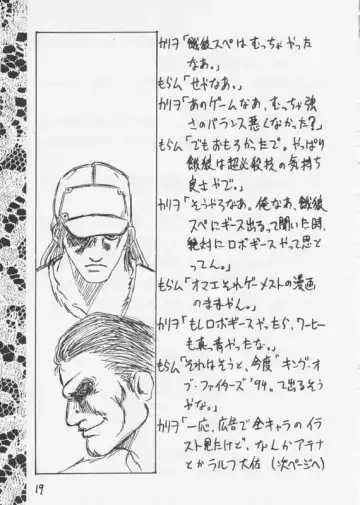 カリヲ「餓狼スペはむっちゃやった
なあ。」
もらム「せやなあ。」
カリヲ「あのゲームなあ、むっちゃ強
さのバランス悪くなかった?」
もらム「でもおもろかったで。やっぱり
餓狼は超必殺技の気持ち
良さやで。」
カリヲ「そうやろなあ。俺なあ、餓狼
スペにギース出るって聞いた時、
絶対にロボギースやって思と
ってん。」
もらム「オマエそれゲーメストの漫画
のまんまやん。」
カリヲ「もしロボギースやったら、ワーヒー
も真っ青やったな。」
もらム「それはそうと、今度"キング・オ
ブ・ファイターズ'94"って出るそう
やな。」
カリヲ「一応、広告で全キャラのイラ
スト見たけど、なんかアテナ
とかラルフ大佐 (次ページへ)
19